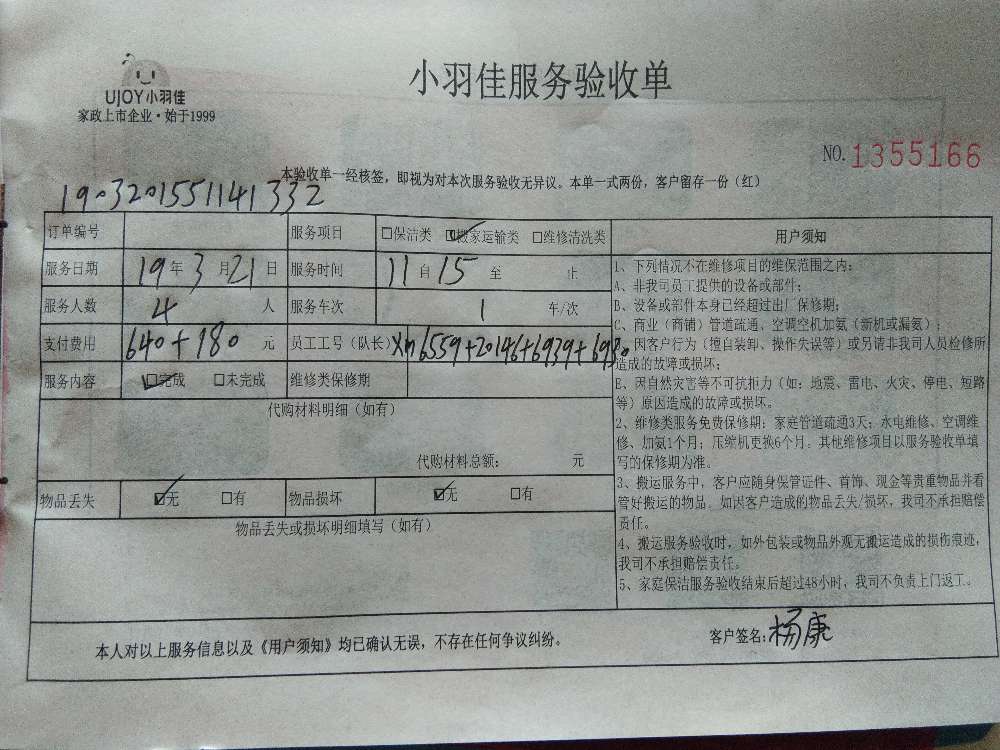 小羽佳服务验收单
UJOY小羽佳
家政上市企业·始于1999
NO. 1355166
本验收单一经核签，即视为对本次服务验收无异议。本单一式两份，客户留存一份（红）
1903201551141332
订单编号 服务项目 □保洁类 ☑搬家运输类 □维修清洗类
服务日期 19年3月21日 服务时间 11自15至 止
服务人数 4 人 服务车次 1 车/次
支付费用 640+180 元 员工工号（队长） Xm6559+20146+6939+6980
服务内容 ☑完成 □未完成 维修类保修期
代购材料明细（如有）
代购材料总额： 元
物品丢失 ☑无 □有 物品损坏 ☑无 □有
物品丢失或损坏明细填写（如有）
用户须知
1、下列情况不在维修项目的维保范围之内：
A、非我司员工提供的设备或部件；
B、设备或部件本身已经超过出厂保修期；
C、商业（商铺）管道疏通、空调空机加氨（新机或漏氨）；
因客户行为（擅自装卸、操作失误等）或另请非我司人员检修所
造成的故障或损坏；
E、因自然灾害等不可抗拒力（如：地震、雷电、火灾、停电、短路
等）原因造成的故障或损坏。
2、维修类服务免费保修期：家庭管道疏通3天；水电维修、空调维
修、加氨1个月；压缩机更换6个月。其他维修项目以服务验收单填
写的保修期为准。
3、搬运服务中，客户应随身保管证件、首饰、现金等贵重物品并看
管好搬运的物品。如因客户造成的物品丢失/损坏，我司不承担赔偿
责任。
4、搬运服务验收时，如外包装或物品外观无搬运造成的损伤痕迹，
我司不承担赔偿责任。
5、家庭保洁服务验收结束后超过48小时，我司不负责上门返工。
本人对以上服务信息以及《用户须知》均已确认无误，不存在任何争议纠纷。
客户签名：杨康